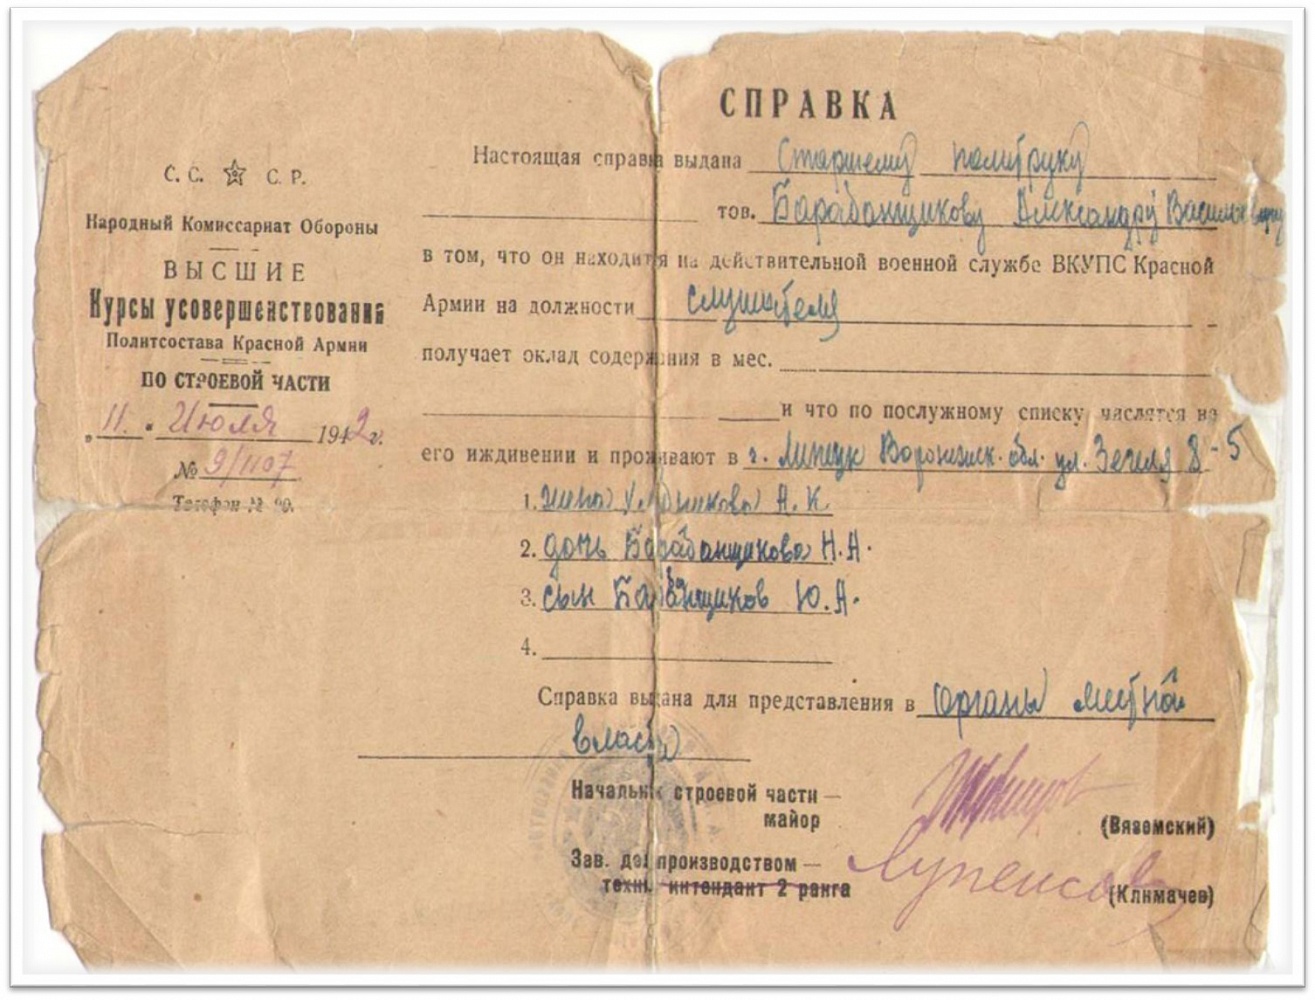 С. С. С. Р.
Народный Комиссариат Обороны
ВЫСШИЕ
Курсы усовершенствования
Политсостава Красной Армии
ПО СТРОЕВОЙ ЧАСТИ
„11." Июля 1942 г.
№ 9/1107
Телефон № 90.
СПРАВКА
Настоящая справка выдана Старшему политруку
тов. Барабанщикову Александру Васильевичу
в том, что он находится на действительной военной службе ВКУПС Красной
Армии на должности слушателя
получает оклад содержания в мес.
и что по послужному списку числятся на
его иждивении и проживают в г. Липецк Воронежск. обл. ул. 8-5
1. жена А. К.
2. дочь Барабанщикова Н. А.
3. сын Барабанщиков Ю. А.
4.
Справка выдана для представления в органы местной
власти
Начальник строевой части —
майор (Вяземский)
Зав. делопроизводством —
техн. интендант 2 ранга (Климачев)